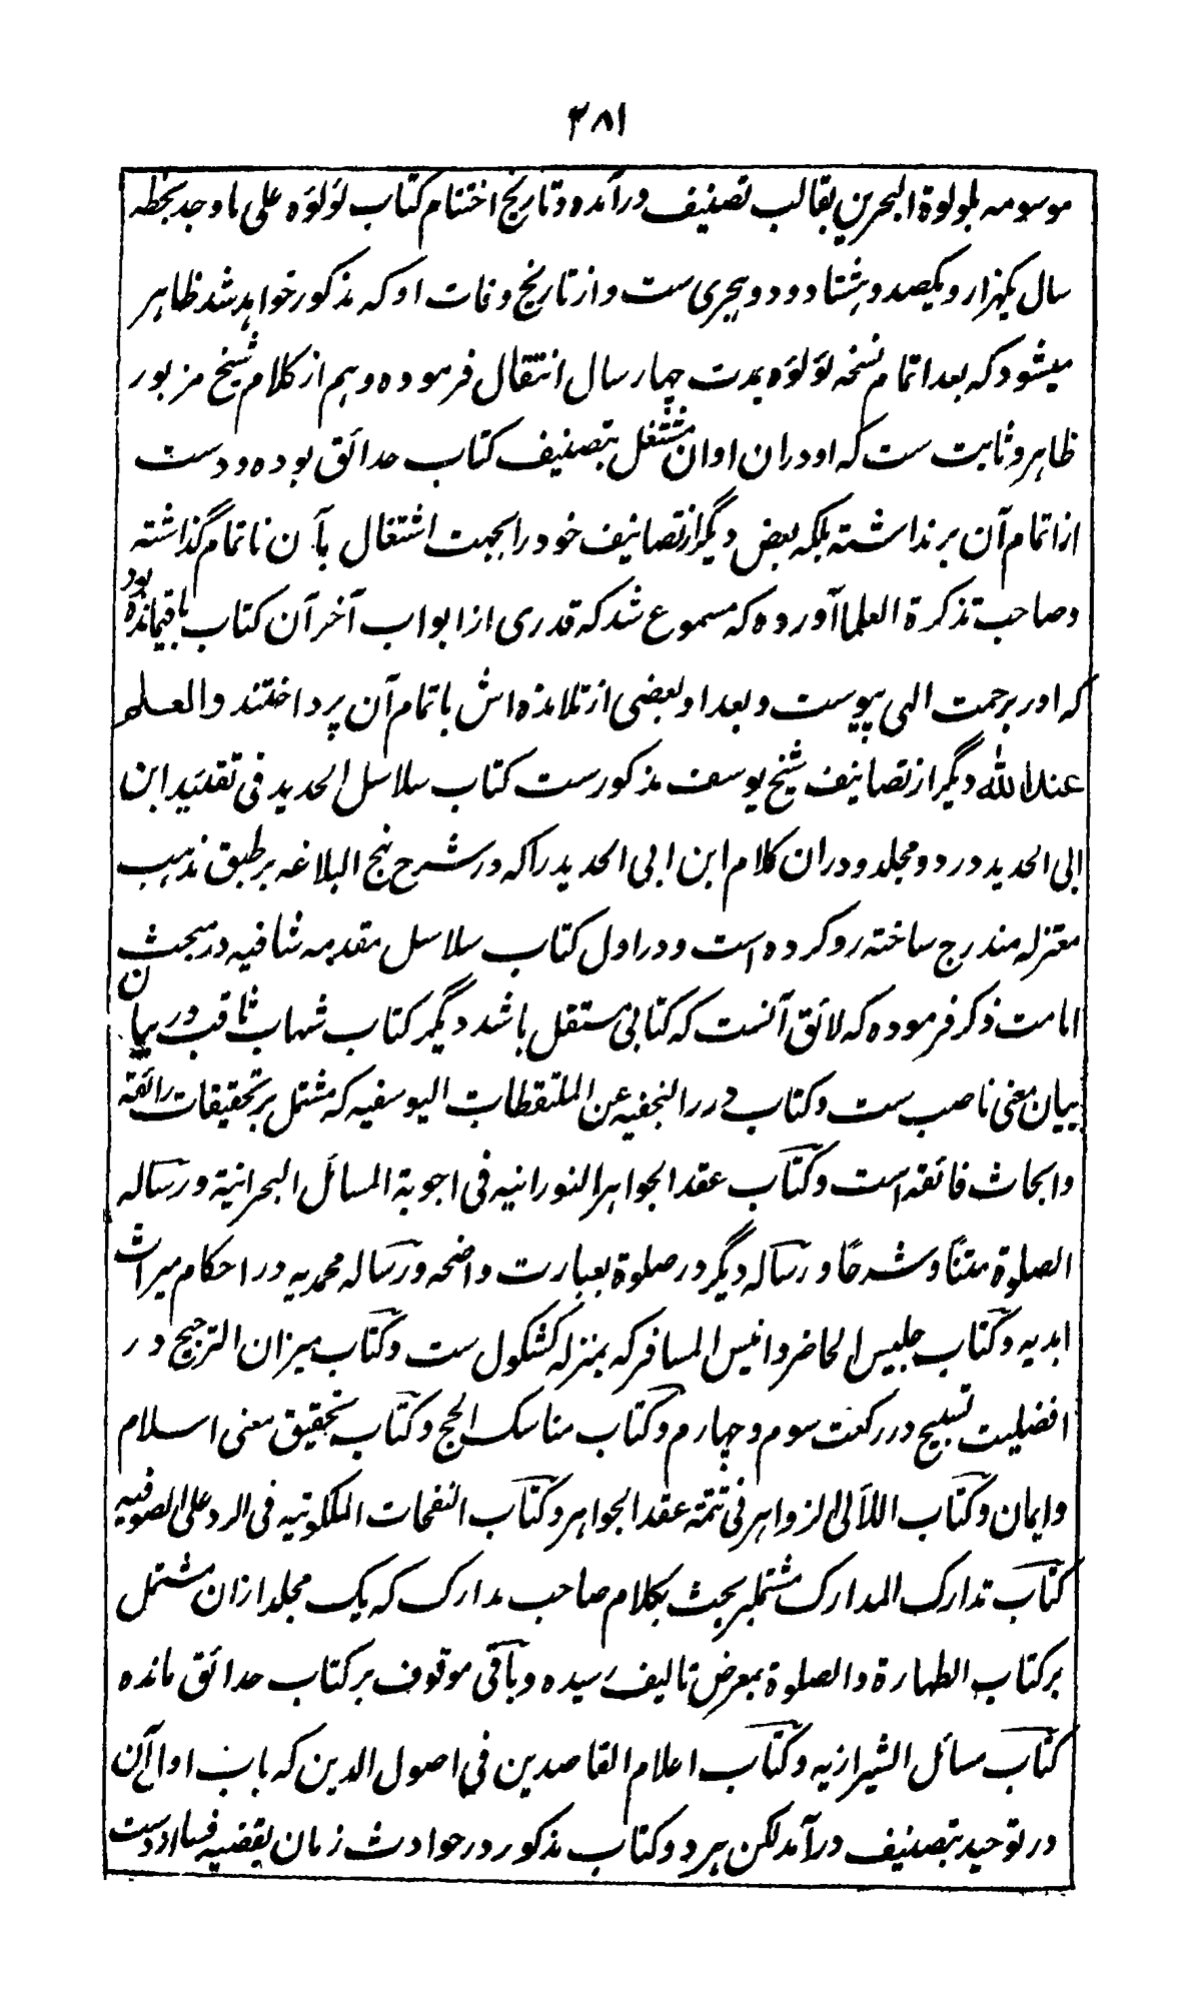 ۲۸۱
موسومه بلولوة البحرین بقالب تصنیف درآمده و تاریخ اختتام کتاب لؤلؤه علی ما وجد بخطه
سال یکهزار و یکصد و هشتاد و دو هجری ست و از تاریخ وفات او که مذکور خواهد شد ظاهر
میشود که بعد اتمام نسخه لؤلؤه بمدت چهار سال انتقال فرموده و هم از کلام شیخ مزبور
ظاهر و ثابت ست که او دران اوان مشتغل بتصنیف کتاب حدائق بوده و دست
از اتمام آن برنداشته بلکه بعض دیگر از تصانیف خود را بجهت اشتغال بآن ناتمام گذاشته
و صاحب تذکرة العلما آورده که مسموع شد که قدری از ابواب آخر آن کتاب باقیمانده بود
که او بر حمت الهی پیوست و بعد او بعضی از تلامذه اش باتمام آن پرداختند والعلم
عند الله دیگر از تصانیف شیخ یوسف مذکورست کتاب سلاسل الحدید فی تقئید ابن
ابی الحدید در دو مجلد و دران کلام ابن ابی الحدید را که در شرح نهج البلاغه بر طبق مذهب
معتزله مندرج ساخته رو کرده است و در اول کتاب سلاسل مقدمه شافیه در مبحث
امامت ذکر فرموده که لائق آنست که کتابی مستقل باشد دیگر کتاب شهاب ثاقب در بیان
بیان معنی ناصب ست و کتاب درر النجفیه عن الملتقطات الیوسفیه که مشتمل بر تحقیقات رائقه
و ابحاث فائقه است و کتاب عقد الجواهر النورانیه فی اجوبة المسائل البحرانیة و رساله
الصلوة متنًا و شرحًا و رساله دیگر در صلوة بعبارت واضحه و رساله محمدیه در احکام میراث
ابدیه و کتاب جلیس الحاضر و انیس المسافر که بمنزله کشکول ست و کتاب میزان الترجیح در
افضلیت تسبیح در رکعت سوم و چهارم و کتاب مناسک الحج و کتاب تحقیق معنی اسلام
و ایمان و کتاب اللآلی الزواهر فی تتمة عقد الجواهر و کتاب النفحات الملکوتیه فی الرد علی الصوفیه
کتاب تدارک المدارک مشتملبر بحث بکلام صاحب مدارک که یک مجلد ازان مشتمل
بر کتاب الطهارة والصلوة بمعرض تالیف رسیده و باقی موقوف بر کتاب حدائق مانده
کتاب مسائل الشیرازیه و کتاب اعلام القاصدین فی اصول الدین که باب اوال آن
در توحید بتصنیف درآمد لکن هر دو کتاب مذکور در حوادث زمان بقضیه فسا از دست